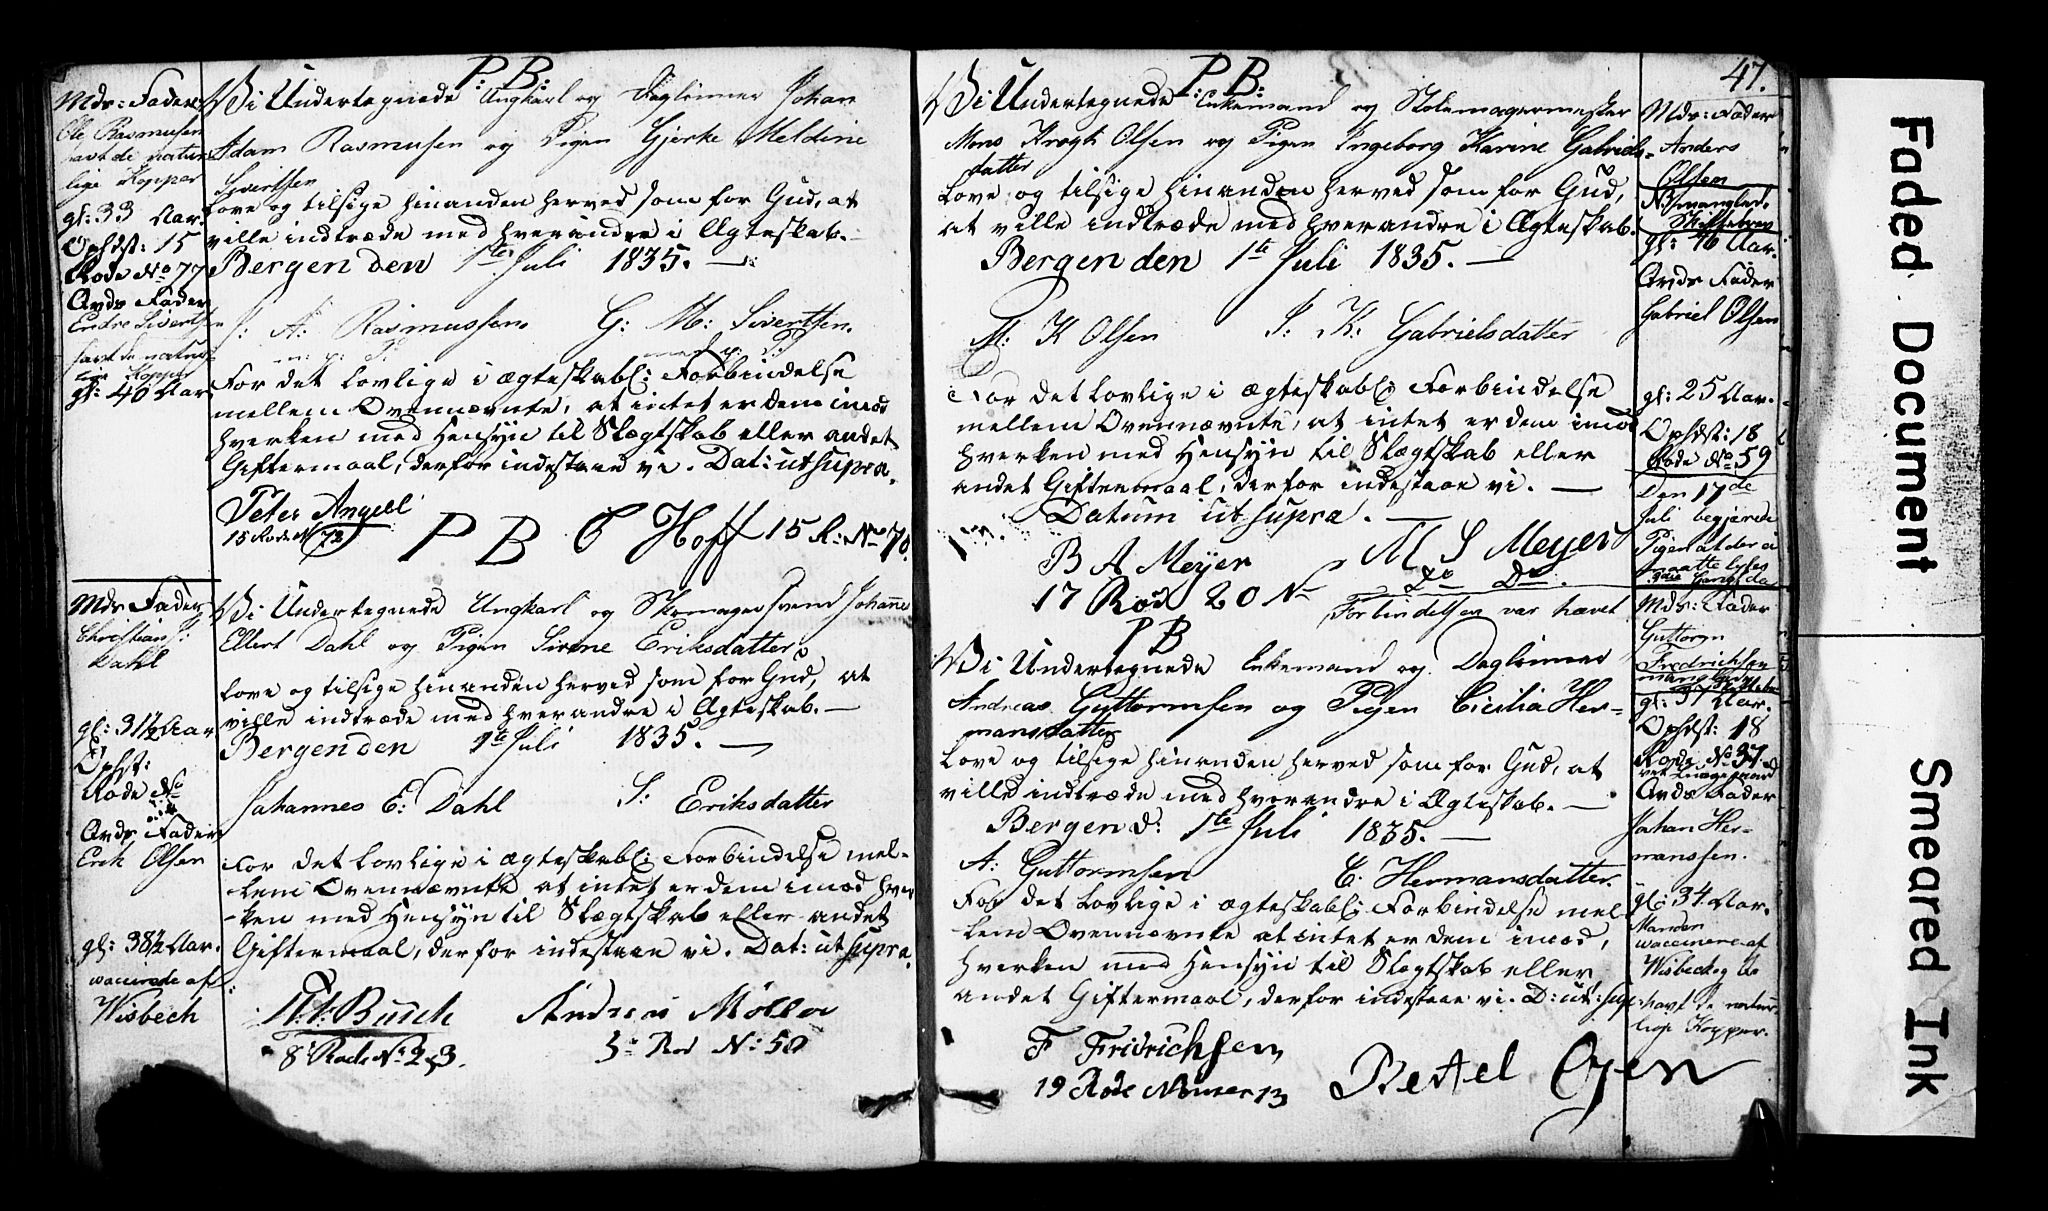 P: B:
Mds: Fader
Ole Rasmusen
havt de natur-
lige Kopper
gl: 33 Aar.
Ophdst: 15
Rode No 77
Brds Fader
Endre Sivertsen
havt de natur-
lige Kopper
gl: 40 Aar
Vi Undertegnede Ungkarl og Daglönner Johan
Adam Rasmusen og Pigen Gjerke Meldine
Sivertsen
Love og tilsige hinanden herved som for Gud, at
ville indtræde med hverandre i Ægteskab. —
Bergen den 1te Juli 1835. —
J: A: Rasmussen. G: M: Sivertsen.
m: p: P: med p: P:
For det lovlige i ægteskabl: Forbindelse
mellem Ovennævnte, at intet er dem imod
hverken med Hensyn til Slægtskab eller andet
Giftermaal, derfor indestaae vi. Dat: ut supra.
Peter Angell C Hoff 15 R: No 70.
15 Rode N 73
P B
Mds Fader
Christian J:
Dahl
gl: 31½ Aar
Ophst:
Rode No
Brds Fader
Erik Olsen
gl: 38½ Aar.
vaccinerede af
Wisbech
Vi Undertegnede Ungkarl og Skomagersvend Johannes
Ellert Dahl og Pigen Sirene Eriksdatter
love og tilsige hinanden herved som for Gud, at
ville indtræde med hverandre i Ægteskab. —
Bergen den 1te Juli 1835. —
Johannes E: Dahl S: Eriksdatter
For det lovlige i ægteskabl: Forbindelse mel-
lem Ovennævnte at intet er dem imod hver
-ken med Hensyn til Slægtskab eller andet
Giftermaal, derfor indestaae vi. Dat: ut supra.
Busch Andreas Möller
8 Rode No 23. 3 Rod N: 50
47.
P: B:
Vi Undertegnede Enkemand og Stolemagermester
Mons Krogh Olsen og Pigen Ingeborg Karine Gabriels-
datter
Love og tilsige hinanden herved som for Gud,
at ville indtræde med hverandre i Ægteskab.
Bergen den 1te Juli 1835. —
M: K Olsen I: K: Gabrielsdatter
For det lovlige i ægteskabl: Forbindelse
mellem Ovennævnte, at intet er dem imod
hverken med Hensyn til Slægtskab eller
andet Giftermaal, derfor indestaae vi. —
Datum ut supra. —
B A Meyer M S Meyer
17 Rod 20 No Do Do.
Forbindelsen var hævet
Mds: Fader
Anders
Olsen
NB mangled.
Skiftebrev
gl: 46 Aar.
Brds Fader
Gabriel Olsen
gl: 25 Aar.
Ophdst: 18
Rode No 59
Den 17de
Juli begjærede
Pigen at der ei
maatte lyses
P B
Vi Undertegnede Enkemand og Daglönner
Andreas Guttormsen og Pigen Cicilia Her-
mansdatter
Love og tilsige hinanden herved som for Gud, at
ville indtræde med hverandre i Ægteskab. —
Bergen d: 1te Juli 1835. —
A: Guttormsen C: Hermansdatter.
For det lovlige i ægteskabl: Forbindelse mel-
lem Ovennævnte at intet er dem imod,
hverken med Hensyn til Slægtskab eller
andet Giftermaal, derfor indestaae vi. D: ut: sup:
F Fridrichsen
19 Rode Nomer 13
Mds: Fader
Guttorm
Fredrichsen
mangler
Skiftebr
gl: 37 Aar.
Ophdst: 18
Rode No 37.
Brds Fader
Johan Her-
manssen.
gl: 34 Aar.
Manden
vaccineret af
Wisbech og De
havt de natur-
lige Kopper.
Faded Document
Smeared Ink